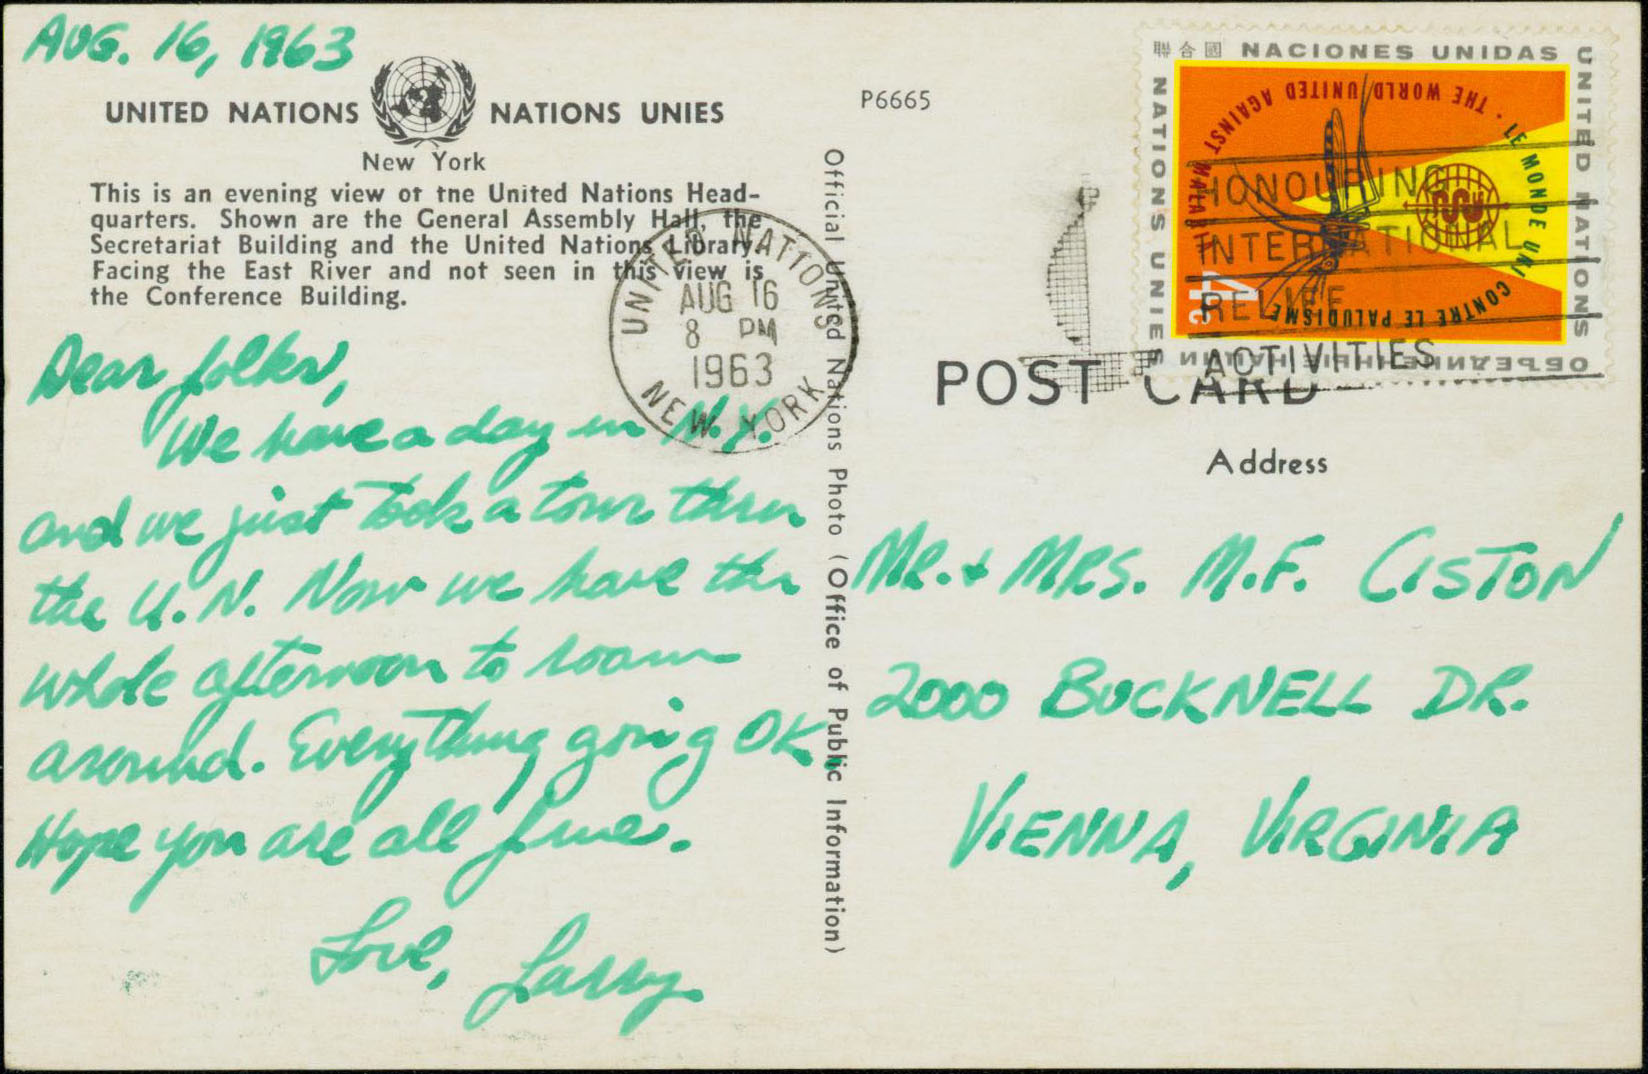 AUG. 16, 1963
UNITED NATIONS NATIONS UNIES
New York
This is an evening view of tne United Nations Head-
quarters. Shown are the General Assembly Hall, the
Secretariat Building and the United Nations Library.
Facing the East River and not seen in this view is
the Conference Building.
Dear folks,
We have a day in N.Y.
and we just took a tour thru
the U.N. Now we have the
whole afternoon to roam
around. Everything going OK.
Hope you are all fine.
Love, Larry
UNITED NATIONS
AUG 16
8 PM
1963
NEW YORK
Official United Nations Photo (Office of Public Information)
P6665
聯合國 NACIONES UNIDAS
UNITED NATIONS
NATIONS UNIES
ОБЪЕДИНЕННЫЕ НАЦИИ
THE WORLD UNITED AGAINST MALARIA
LE MONDE UNI CONTRE LE PALUDISME
4c
HONOURING
INTERNATIONAL
RELIEF
ACTIVITIES
POST CARD
Address
MR. + MRS. M.F. CISTON
2000 BUCKNELL DR.
VIENNA, VIRGINIA